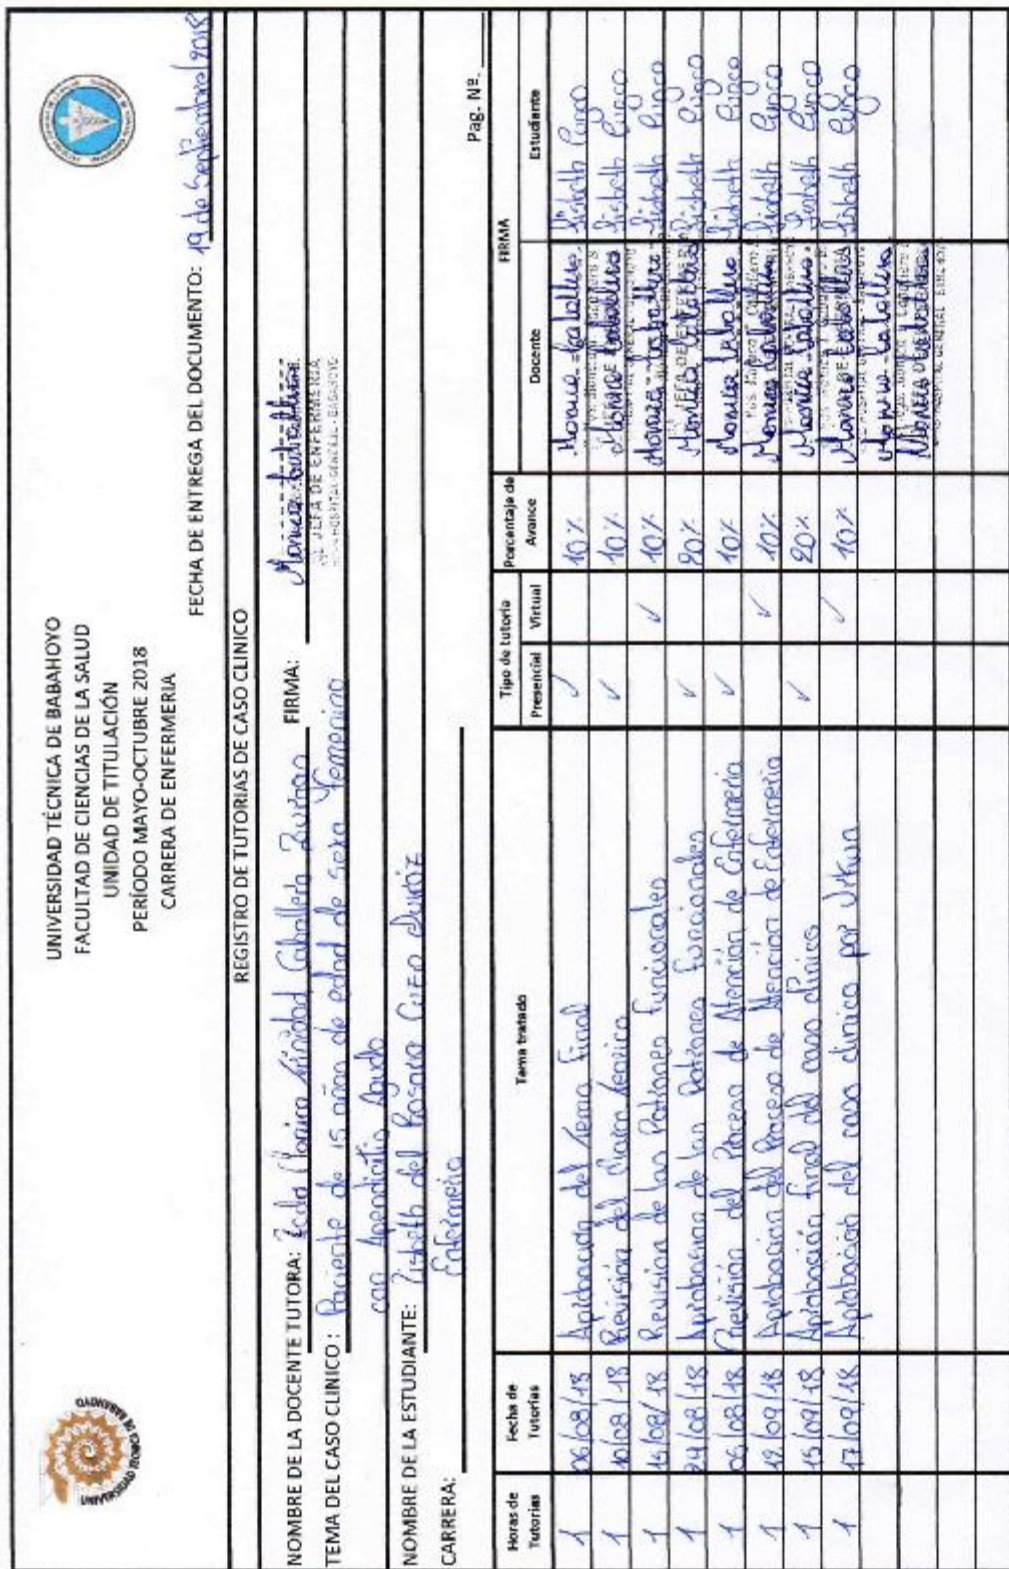 UNIVERSIDAD TÉCNICA DE BABAHOYO
FACULTAD DE CIENCIAS DE LA SALUD
UNIDAD DE TITULACIÓN
PERÍODO MAYO-OCTUBRE 2018
CARRERA DE ENFERMERIA
FECHA DE ENTREGA DEL DOCUMENTO: 19 de Septiembre/2018
REGISTRO DE TUTORIAS DE CASO CLINICO
NOMBRE DE LA DOCENTE TUTORA: Lcda Monica Trinidad Caballero Burgos FIRMA: Monica Caballero
JEFA DE ENFERMERIA
TEMA DEL CASO CLINICO : Paciente de 15 años de edad de sexo Femenino
con Apendicitis Aguda
NOMBRE DE LA ESTUDIANTE: Lisbeth del Rosario
CARRERA: Enfermeria
Pag. Nº.
Horas de Tutorias Fecha de Tutorias Tema tratado Tipo de tutoria Porcentaje de Avance FIRMA
Presencial Virtual Docente Estudiante
1 06/08/18 Aprobación del Tema Final ✓ 10% Monica Caballero Lisbeth
1 10/08/18 Revisión del Marco Teorico ✓ 10% Monica Caballero Lisbeth
1 15/08/18 Revisión de los Patrones Funcionales ✓ 10% Monica Caballero Lisbeth
1 24/08/18 Aprobasion de los Patrones Funcionales ✓ 20% Monica Caballero Lisbeth
1 05/08/18 Revisión del Proceso de Atención de Enfermeria ✓ 10% Monica Caballero Lisbeth
1 12/09/18 Aprobacion del Proceso de Atencion de Enfermeria ✓ 10% Monica Caballero Lisbeth
1 15/09/18 Aprobación final del caso clinico ✓ 20% Monica Caballero Lisbeth
1 17/09/18 Aprobación del caso clinico por Urkun ✓ 10% Monica Caballero Lisbeth